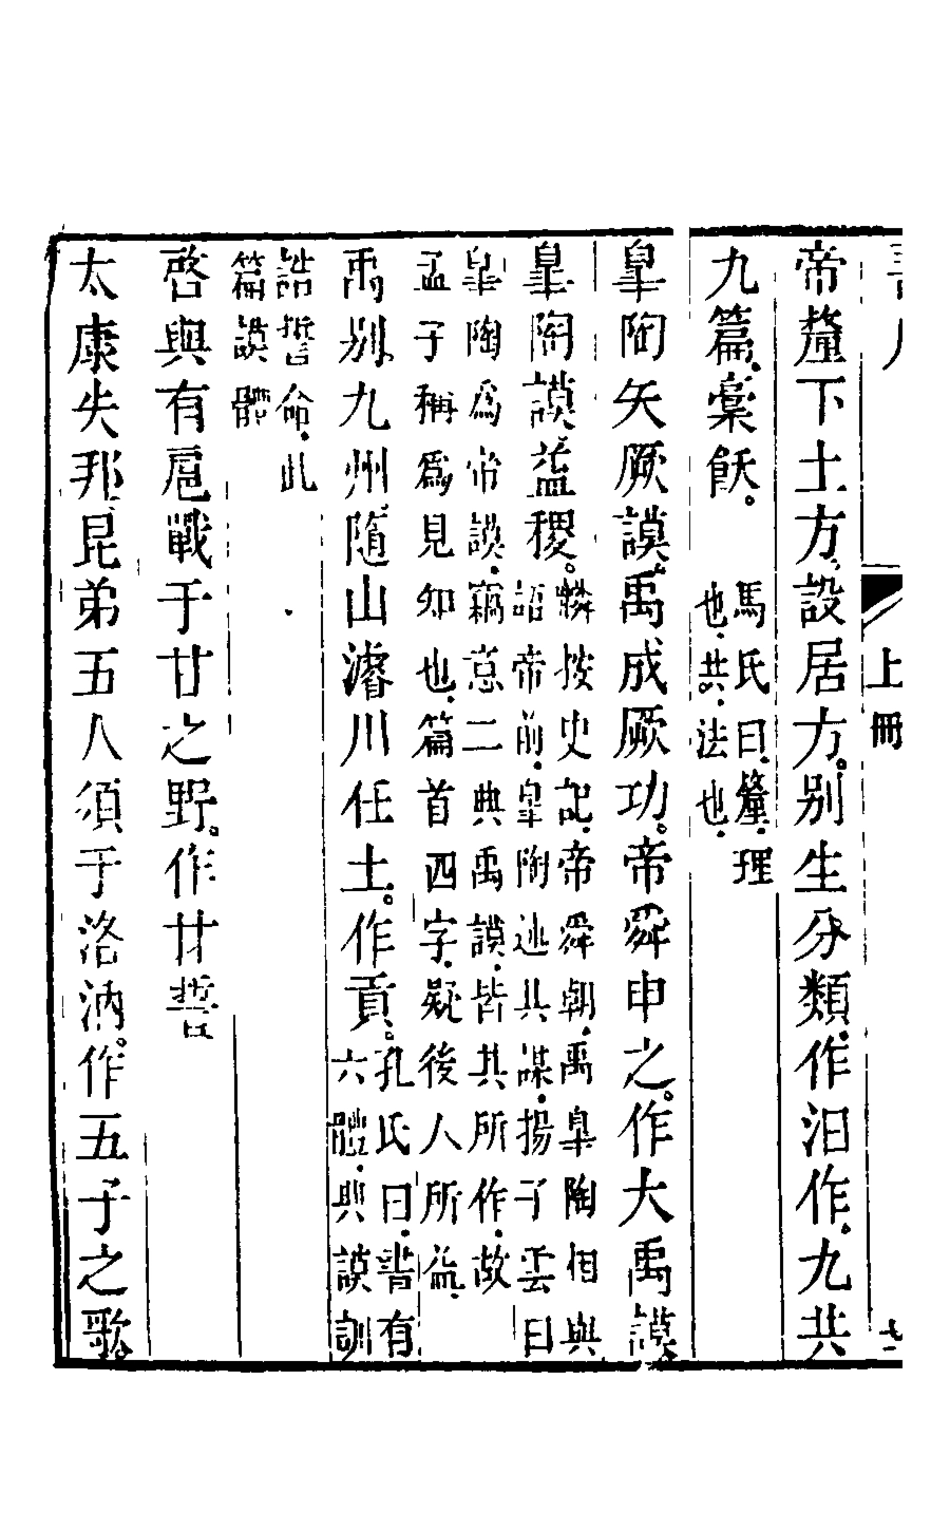 上冊
帝釐下土方。設居方。別生分類。作汨作。九共
九篇。稾飫。馬氏曰。釐。理
也。共。法也。
皐陶矢厥謨。禹成厥功。帝舜申之。作大禹謨。
皐陶謨。益稷。鱗按史記。帝舜朝。禹皐陶相與
語帝前。皐陶述其謀。揚子雲曰
皐陶爲帝謨。竊意二典禹謨。皆其所作。故
孟子稱爲見知也。篇首四字。疑後人所益。
禹别九州。隨山濬川。任土。作貢。孔氏曰。書有
六體。典謨訓
誥誓命。此
篇謨體
啓與有扈戰于甘之野。作甘誓
太康失邦。昆弟五人須于洛汭。作五子之歌。